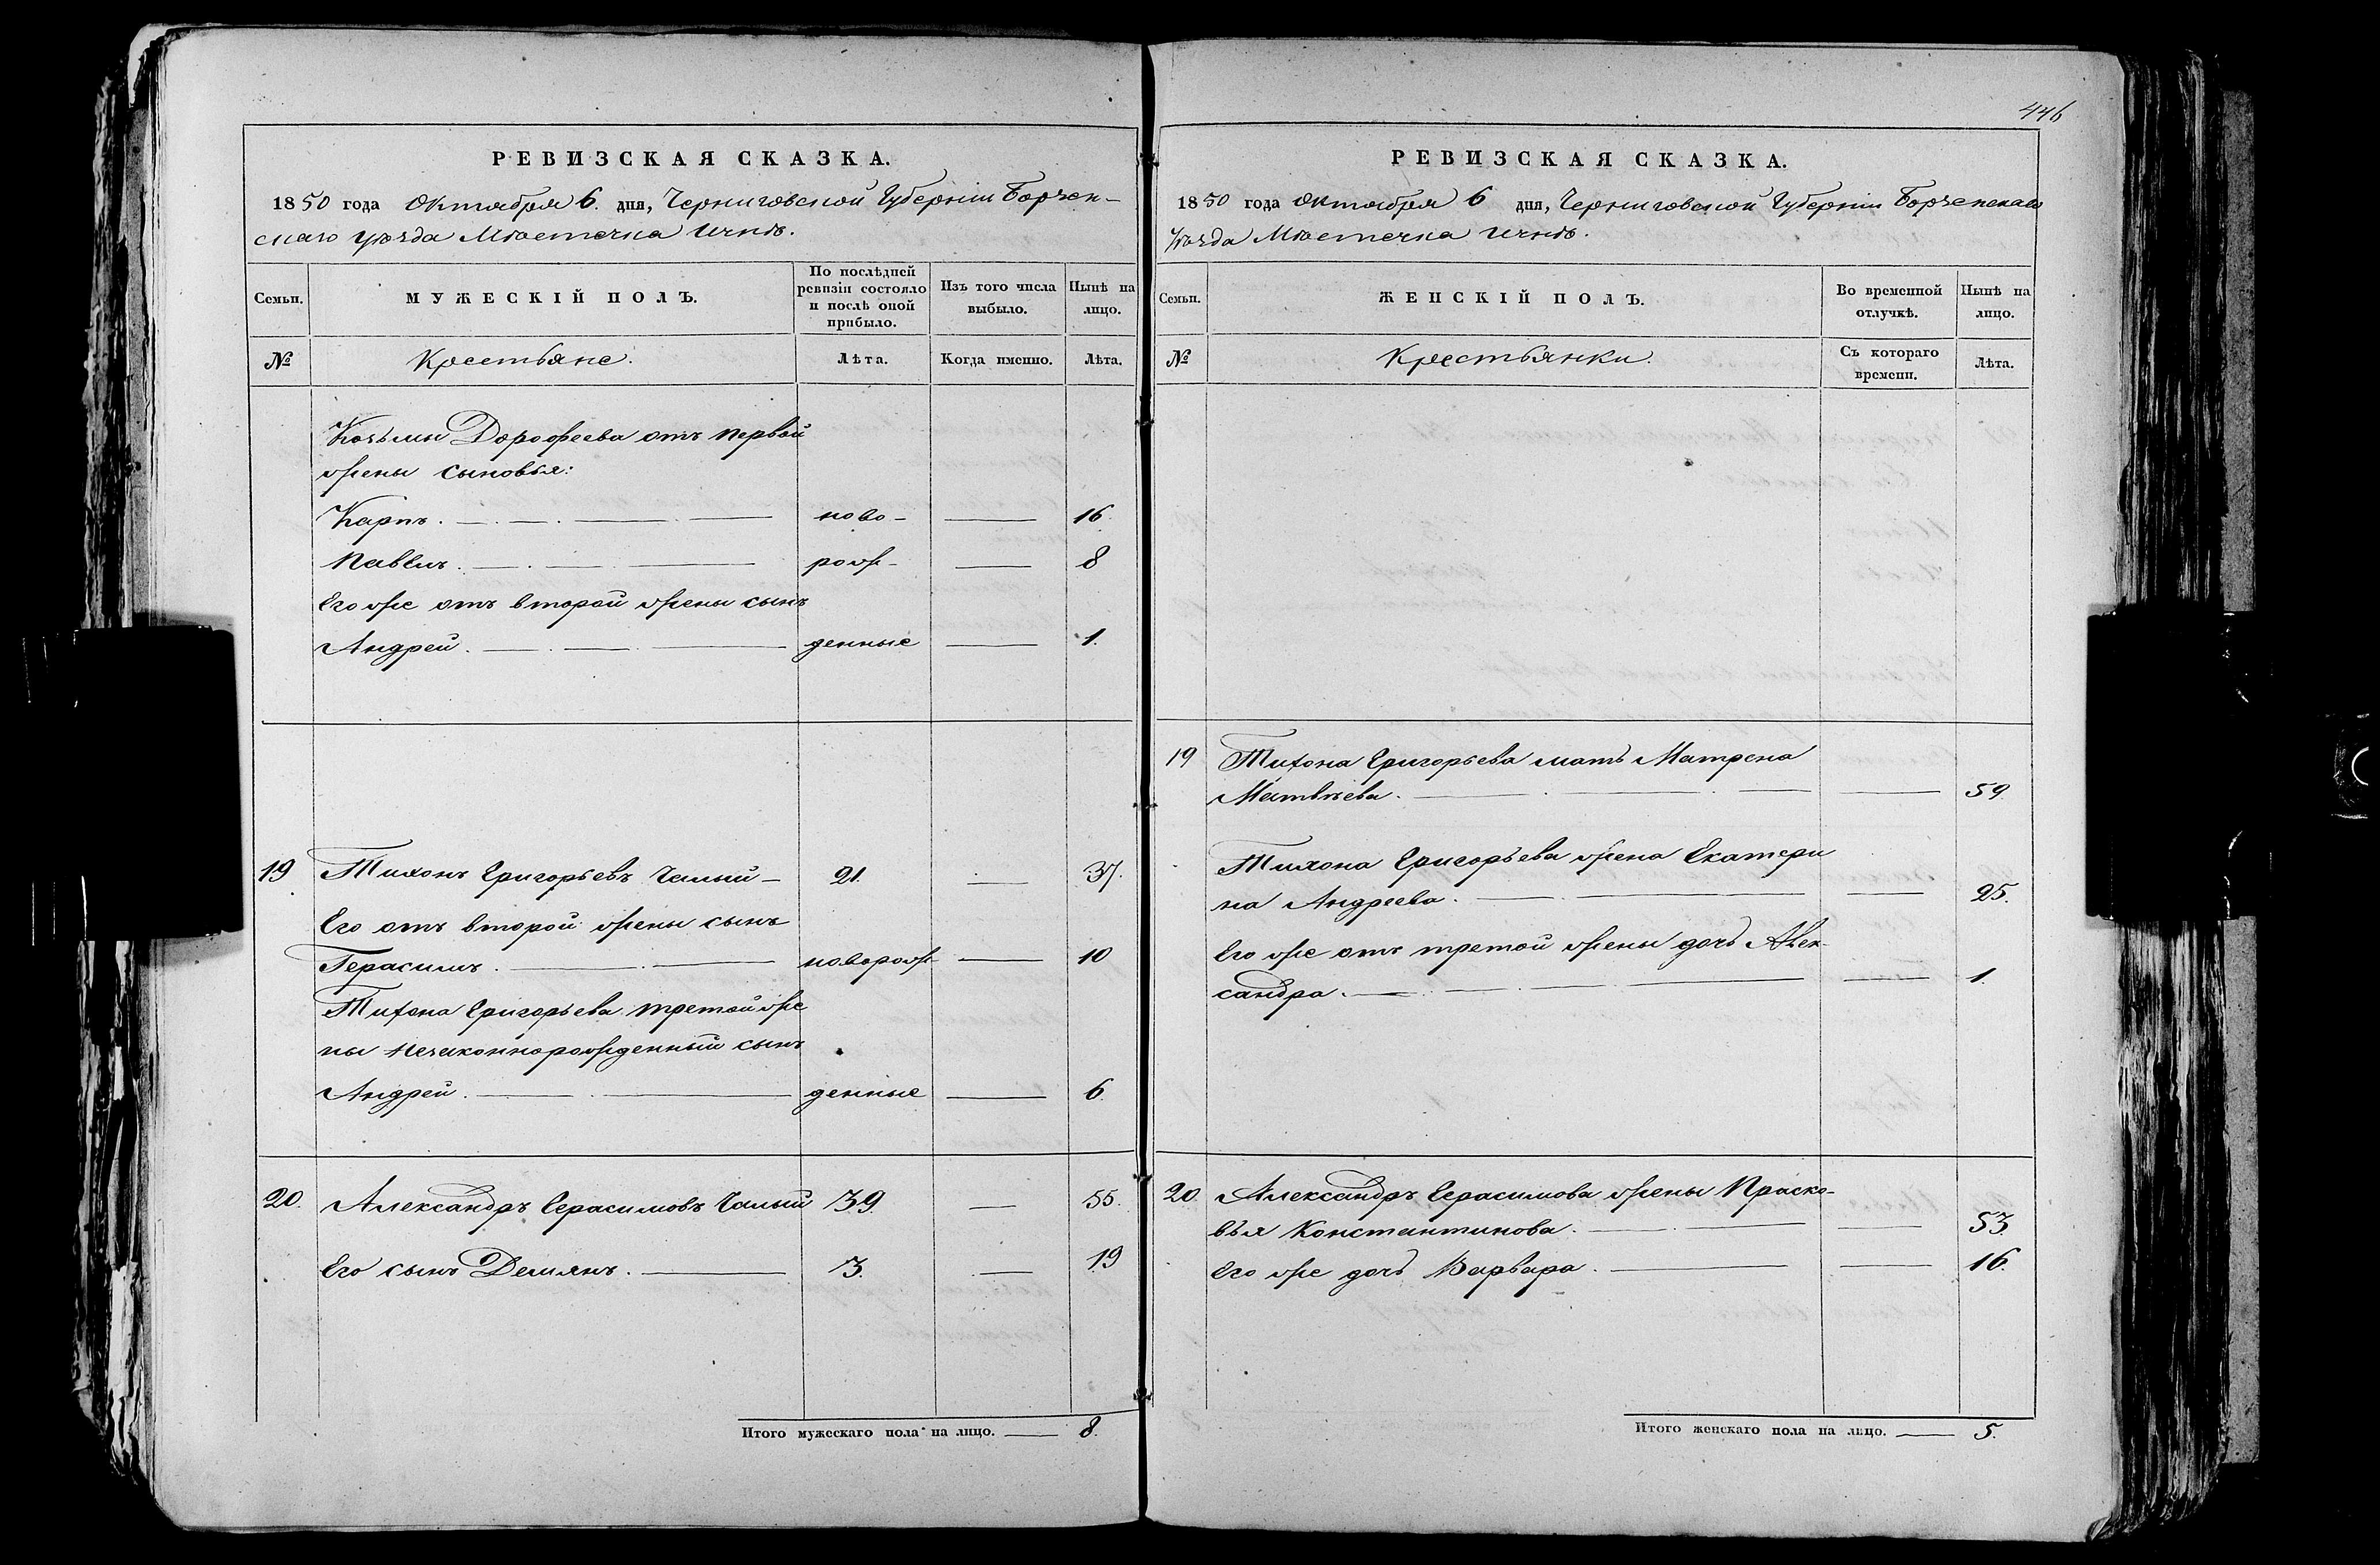 РЕВИЗСКАЯ СКАЗКА.
1850 года Октября 6. дня, Черниговской Губерніи Борзен-
скаго уѣзда Мѣстечка Ични.
Семьи.
МУЖЕСКІЙ ПОЛЪ.
По послѣдней ревизіи состояло и послѣ оной прибыло.
Изъ того числа выбыло.
Нынѣ на лицо.
№
Крестьяне.
Лѣта.
Когда именно.
Лѣта.
Козьмы Дорофеева отъ первой
жены сыновья:
Карпъ. ново- 16.
Павелъ. рож- 8
Его же отъ второй жены сынъ
Андрей. денные 1.
19 Тихонъ Григорьевъ Чалый 21. 37.
Его отъ второй жены сынъ
Герасимъ. новорож- 10
Тихона Григорьева третой же
ны незаконнорожденный сынъ
Андрей. денные 6.
20. Александръ Герасимовъ Чалый 39. 55.
Его сынъ Демянъ. 3. 19
Итого мужескаго пола на лицо. 8.
446
РЕВИЗСКАЯ СКАЗКА.
1850 года Октября 6 дня, Черниговской Губерніи Борзенскаго
Уѣзда Мѣстечка Ични.
Семьи.
ЖЕНСКІЙ ПОЛЪ.
Во временной отлучкѣ.
Нынѣ на лицо.
№
Крестьянки.
Съ котораго времени.
Лѣта.
19 Тихона Григорьева мать Матрена
Матвѣева. 59.
Тихона Григорьева жена Екатери
на Андреева. 25.
Его же отъ третой жены дочь Алек-
сандра. 1.
20. Александръ Герасимова жены Праско-
вья Константинова. 53.
Его же дочь Варвара. 16.
Итого женскаго пола на лицо. 5.